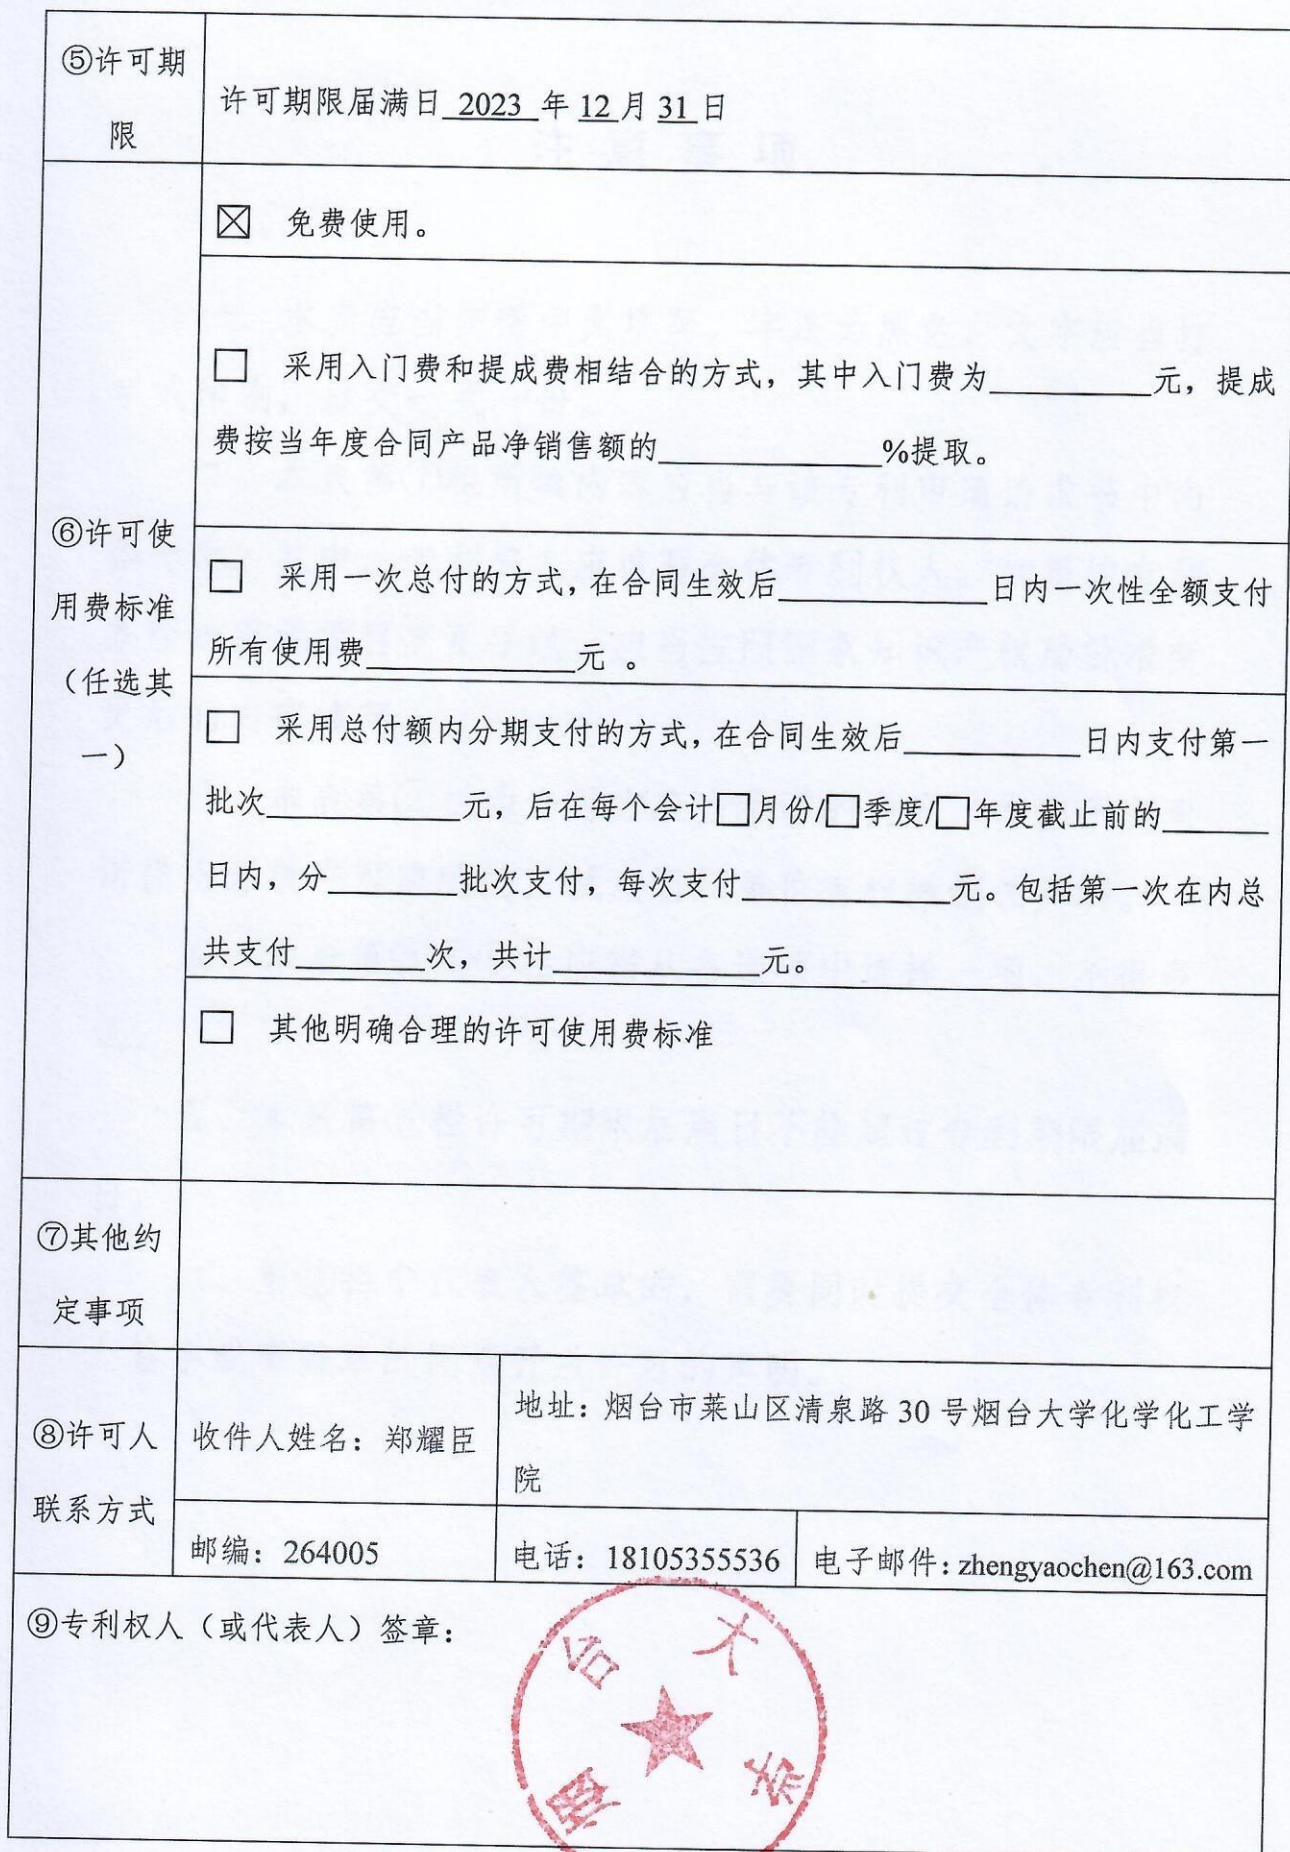 ⑤许可期
限
许可期限届满日 2023 年 12 月 31 日
⑥许可使
用费标准
（任选其
一）
☒ 免费使用。
□ 采用入门费和提成费相结合的方式，其中入门费为________元，提成
费按当年度合同产品净销售额的________%提取。
□ 采用一次总付的方式，在合同生效后________日内一次性全额支付
所有使用费________元 。
□ 采用总付额内分期支付的方式，在合同生效后________日内支付第一
批次________元，后在每个会计□月份/□季度/□年度截止前的________
日内，分________批次支付，每次支付________元。包括第一次在内总
共支付________次，共计________元。
□ 其他明确合理的许可使用费标准
⑦其他约
定事项
⑧许可人
联系方式
收件人姓名：郑耀臣
地址：烟台市莱山区清泉路 30 号烟台大学化学化工学
院
邮编：264005
电话：18105355536
电子邮件：zhengyaochen@163.com
⑨专利权人（或代表人）签章：
烟台大学